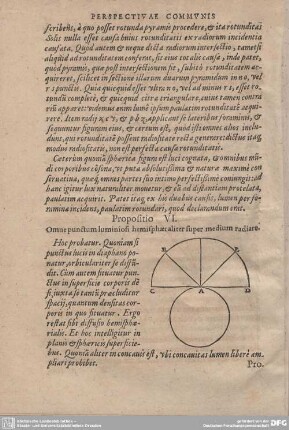 PERSPECTIVAE COMMVNIS
scribens, à quo posset rotunda pyramis procedere, & ita rotunditas
Solis nulla esset causa huius rotunditatis ex radiorum incidentia
causata. Quod autem & neque dicta radiorum intersectio, tametsi
aliquid ad rotunditatem conferat, sit eius totalis causa, inde patet,
quòd pyramis, quae post intersectionem fit, subitò rotunditatem
acquireret, scilicet in sectione illarum duarum pyramidum in no, vel
rs punctis. Quia quicquid esset vltra no, vel ad minus rs, esset ro-
tundũ complete, & quicquid citra triangulare, cuius tamen contra
riũ apparet: videmus enim hunc ipsum paulatim rotunditatẽ acqui
rere. Item radij
applicant se lateribus foraminis, &
sequuntur figuram eius, & certum est, quòd isti omnes alios inclu-
dunt, qui rotunditatẽ possunt
recta generare: dictus itaq;
modus radicatis, non est perfecta causa rotunditatis.
Caeterum quoniã sphaerica figura est luci cognata, & omnibus mũ
di corporibus cõsona, vt puta absolutissima & naturae maximè con
seruatiua, quaeq; omnes partes suo intimo perfectissimè coniungit: ad
hanc igitur lux naturaliter mouetur, & eã ad distantiam procelata,
paulatim acquirit. Patet itaq; ex his duabus causis, lumen per fo-
ramina incidens, paulatim rotundari, quod declarandum erat.
Propositio VI.
Omne punctum luminosi hemisphaeraliter super medium radiare.
Hoc probatur. Quoniam si
punctus lucis in diaphano po-
natur, orbiculariter se diffu-
dit. Cùm autem situatur pun-
ctus in superficie corporis dẽ
si, iuxta se tantũ praecluditur
spacij, quantum densitas cor-
poris in quo situatur. Ergo
restat sibi diffusio hemisphae-
rialis. Et hoc intelligitur in
planis & sphaericis superficie-
bus. Quoniã aliter in concauis est, vbi concauitas lumen liberè am
pliari prohibet.
C A D
Pro.